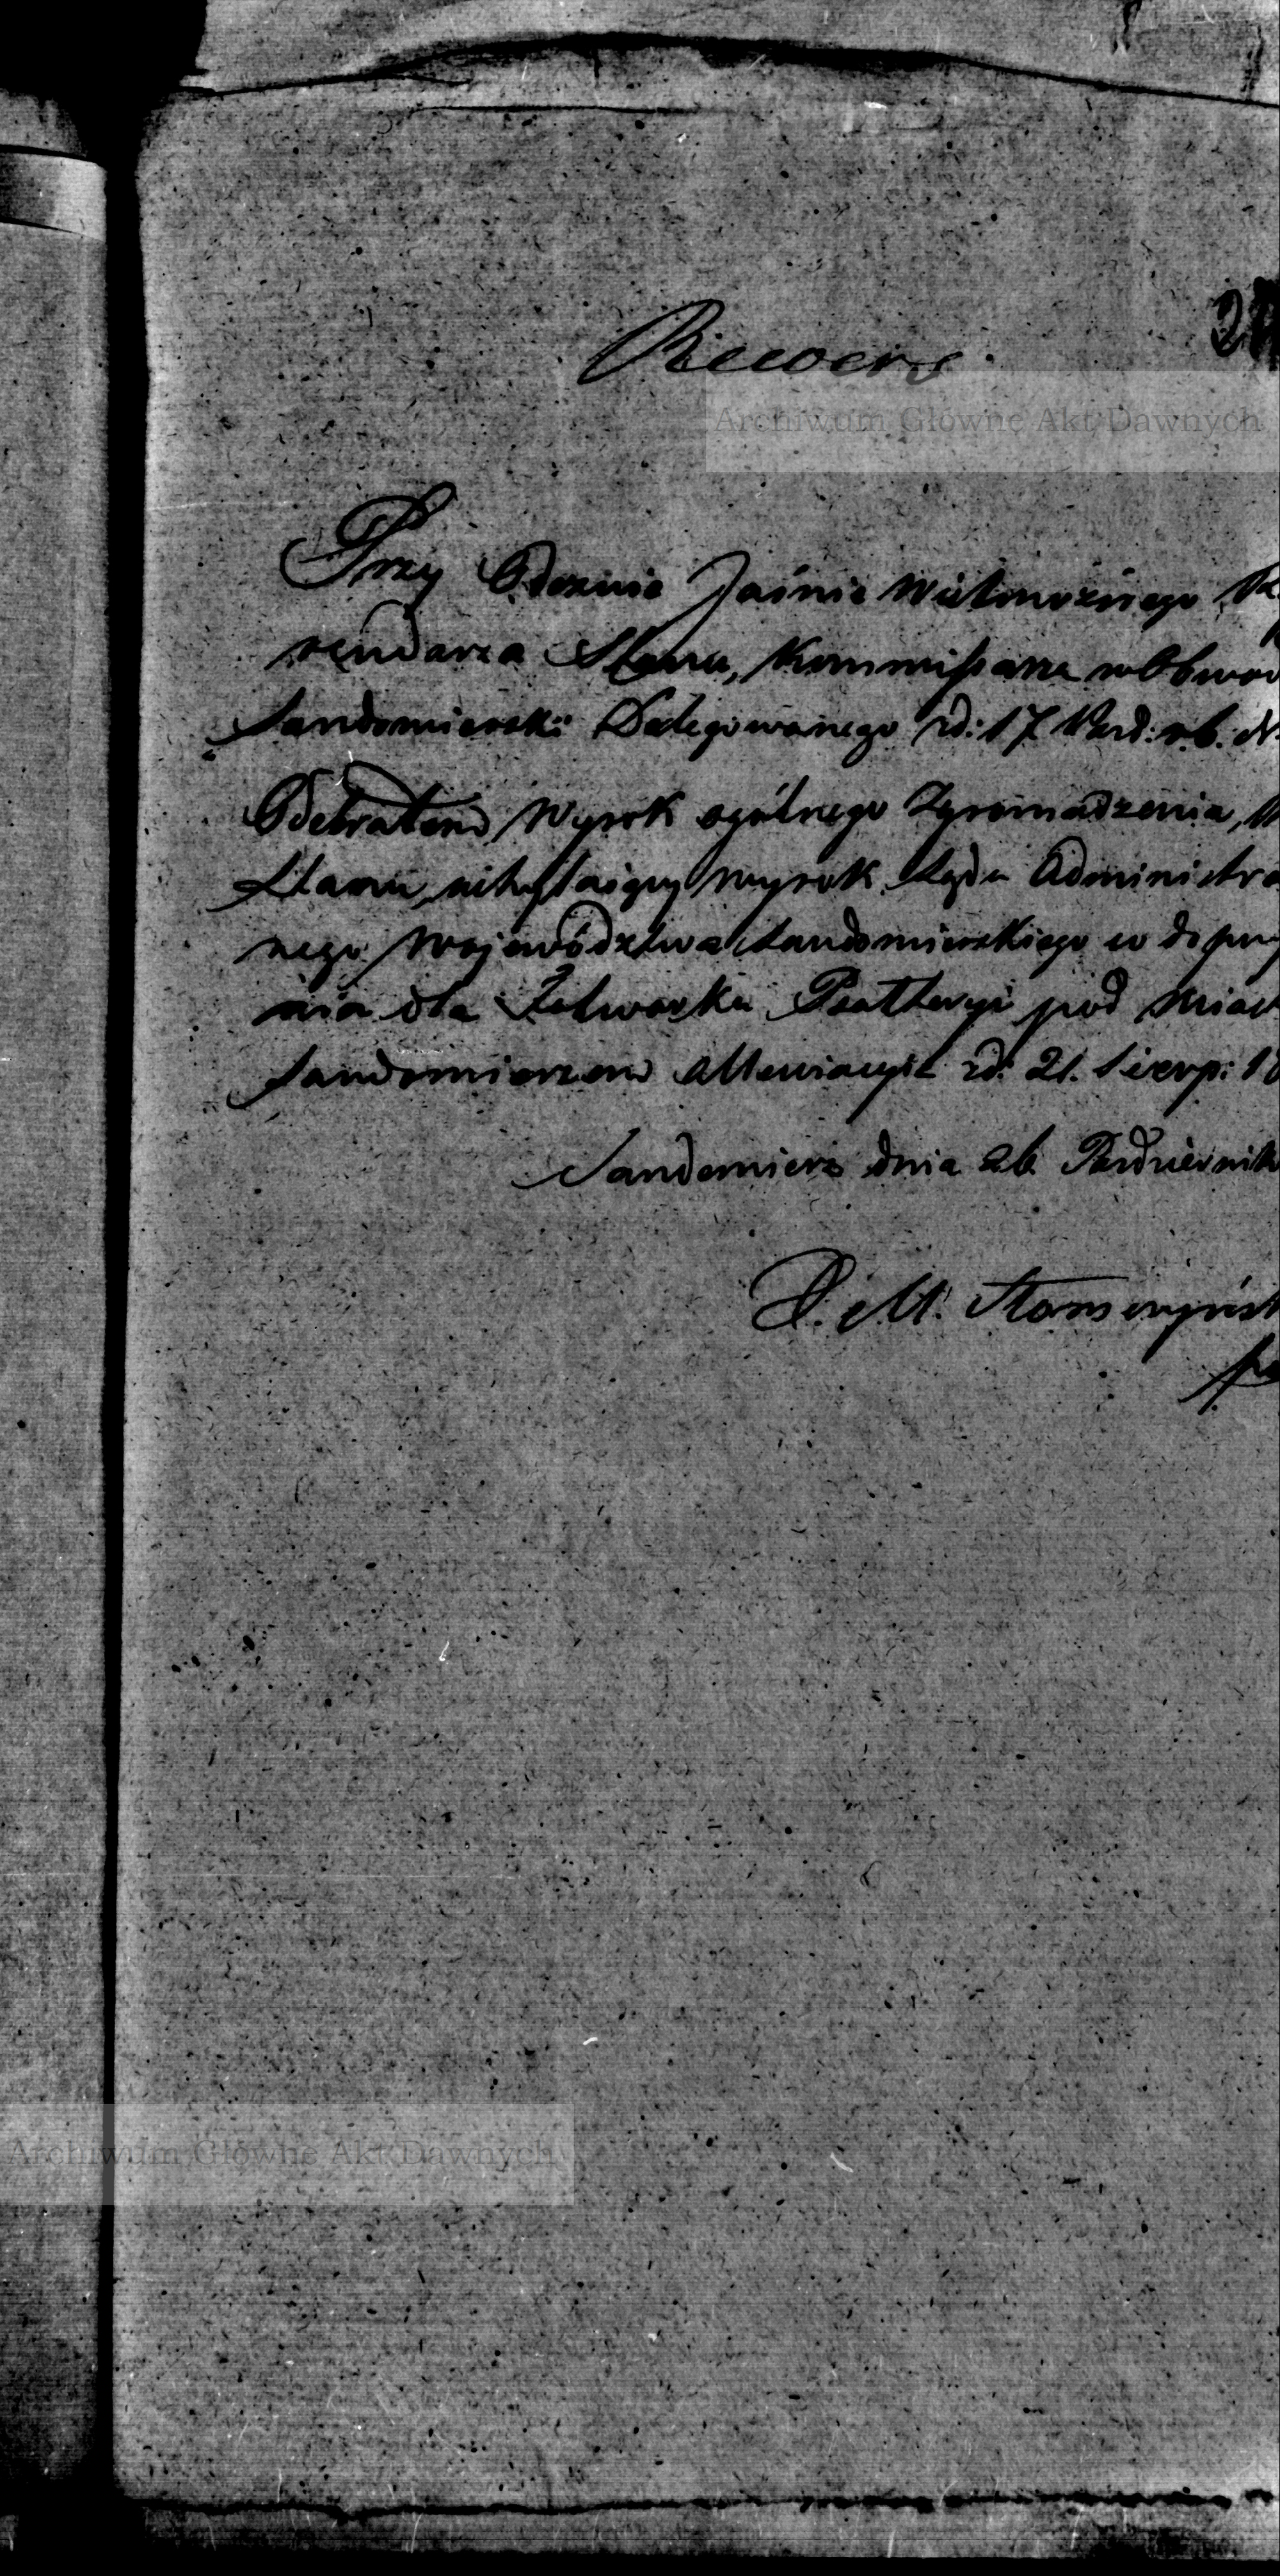 Rewers.
Archiwum Główne Akt Dawnych
Przy Odezwie Jaśnie Wielmożnego
rendarza Stanu, Kommissarza w Obwod
Sandomierski: Delegowanego zd: 17 Paźd: r.b. N
Odebrałem Wyrok ogólnego Zgromadzenia,
Stanu, uchylaiący wyrok Sądu Administra
nego Województwa Sandomierskiego co do
nia dla Folwarku Psałteryi pod Mias
Sandomierzem zd: 21. Sierp: 1
Sandomierz dnia 26 Październik
P. M.
Archiwum Główne Akt Dawnych